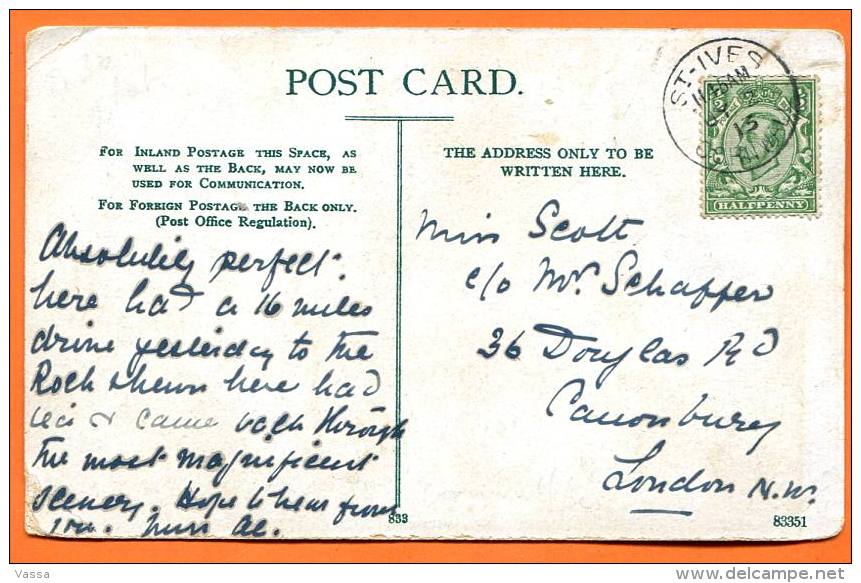 POST CARD.
FOR INLAND POSTAGE THIS SPACE, AS
WELL AS THE BACK, MAY NOW BE
USED FOR COMMUNICATION.
FOR FOREIGN POSTAGE THE BACK ONLY.
(Post Office Regulation).
THE ADDRESS ONLY TO BE
WRITTEN HERE.
ST-IVES
15
HALFPENNY
Absolutely perfect.
here had a 16 miles
drive yesterday to the
Rock shewn here had
tea & came back through
the most magnificent
scenery. Hope to hear from
you.
Miss Scott
c/o Mr Schaffer
36 Douglas Rd
Canonbury
London N.W.
833
83351
Vassa
delcampe.net